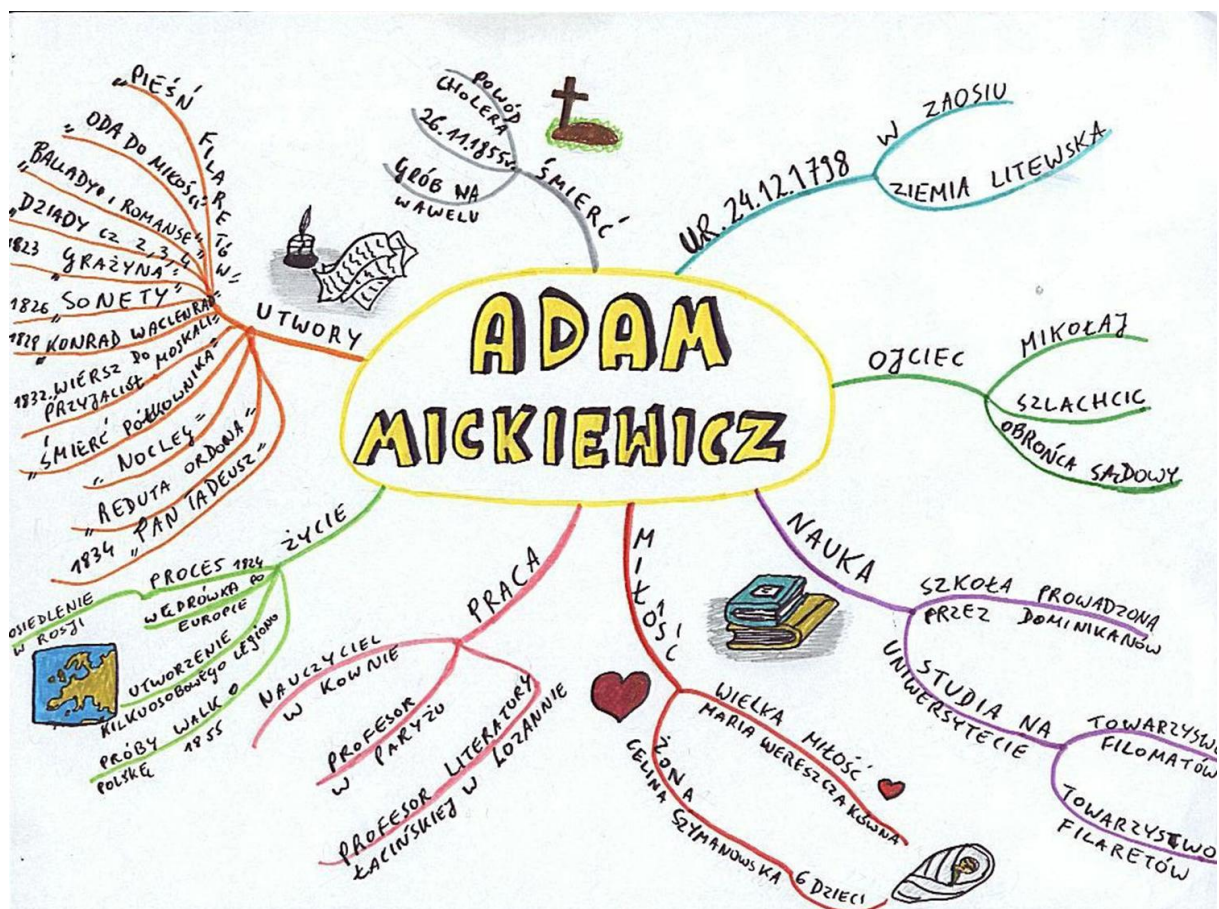 ADAM
MICKIEWICZ
UR. 24.12.1798
W ZAOSIU
ZIEMIA LITEWSKA
OJCIEC
MIKOŁAJ
SZLACHCIC
OBROŃCA SĄDOWY
NAUKA
SZKOŁA PROWADZONA
PRZEZ DOMINIKANÓW
STUDIA NA
UNIWERSYTECIE
TOWARZYSTWO
FILOMATÓW
TOWARZYSTWO
FILARETÓW
MIŁOŚĆ
WIELKA MIŁOŚĆ
MARIA WERESZCZAKÓWNA
ŻONA
CELINA SZYMANOWSKA
6 DZIECI
PRACA
NAUCZYCIEL
W KOWNIE
PROFESOR
W PARYŻU
PROFESOR LITERATURY
ŁACIŃSKIEJ W LOZANNIE
ŻYCIE
PROCES 1824
OSIEDLENIE
W ROSJI
WĘDRÓWKA PO
EUROPIE
UTWORZENIE
KILKUOSOBOWEGO LEGIONU
PRÓBY WALK O
POLSKĘ 1855
UTWORY
„PIEŚŃ FILARETÓW"
„ODA DO MIKOŚCI"
„BALLADY I ROMANSE"
„DZIADY CZ 2,3,4"
1823 „GRAŻYNA"
1826 „SONETY"
1828 „KONRAD WACLENRAD"
1832. WIERSZ DO
PRZYJACIÓŁ MOSKALI"
„ŚMIERĆ PÓŁKOWNIKA"
„NOCLEG"
„REDUTA ORDONA"
1834 „PAN TADEUSZ"
ŚMIERĆ
POWÓD
CHOLERA
26.11.1855r.
GRÓB NA
WAWELU